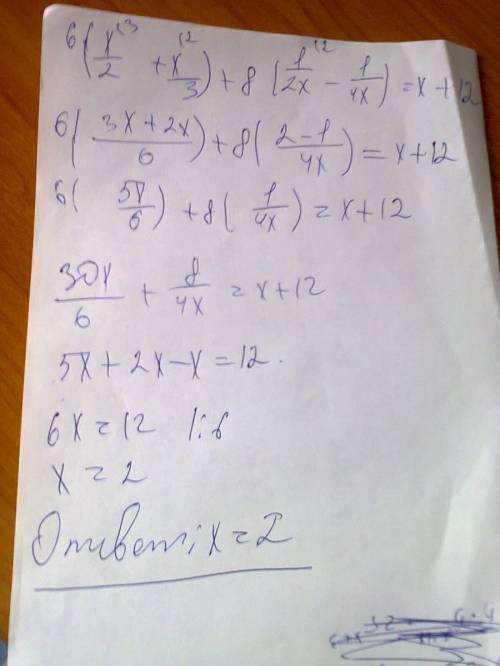 6(x/2 ⁽³ + x/3 ⁽²) + 8(1/2x ⁽² - 1/4x) = x + 12
6(3x + 2x / 6) + 8(2 - 1 / 4x) = x + 12
6(5x/6) + 8(1/4x) = x + 12
30x/6 + 8/4x = x + 12
5x + 2x - x = 12.
6x = 12 |:6
x = 2
Ответ: x = 2